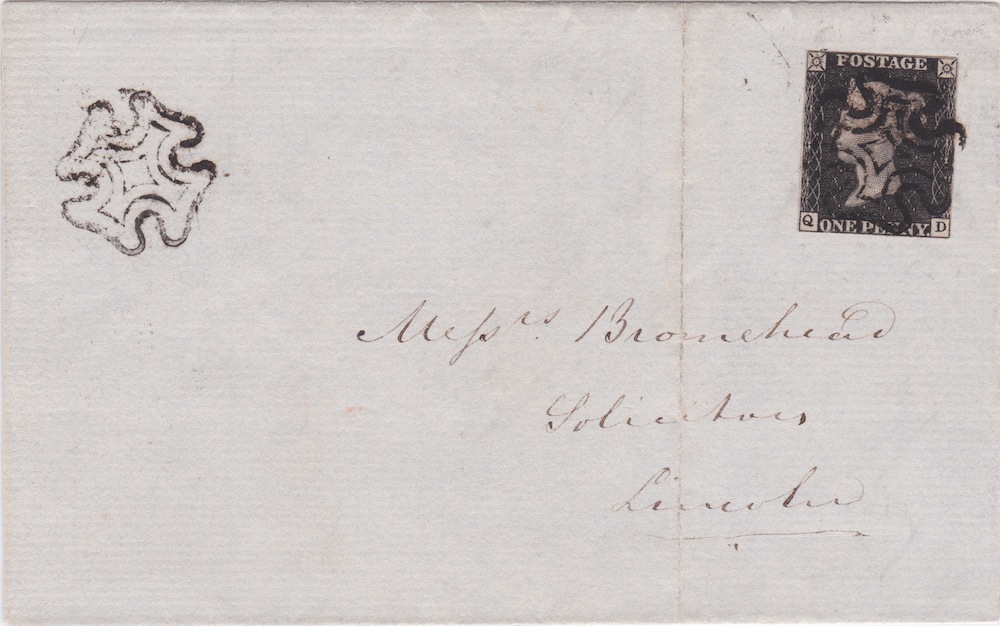 POSTAGE
Q ONE PENNY. D
Messrs. Bromehead
Solicitors
Lincoln